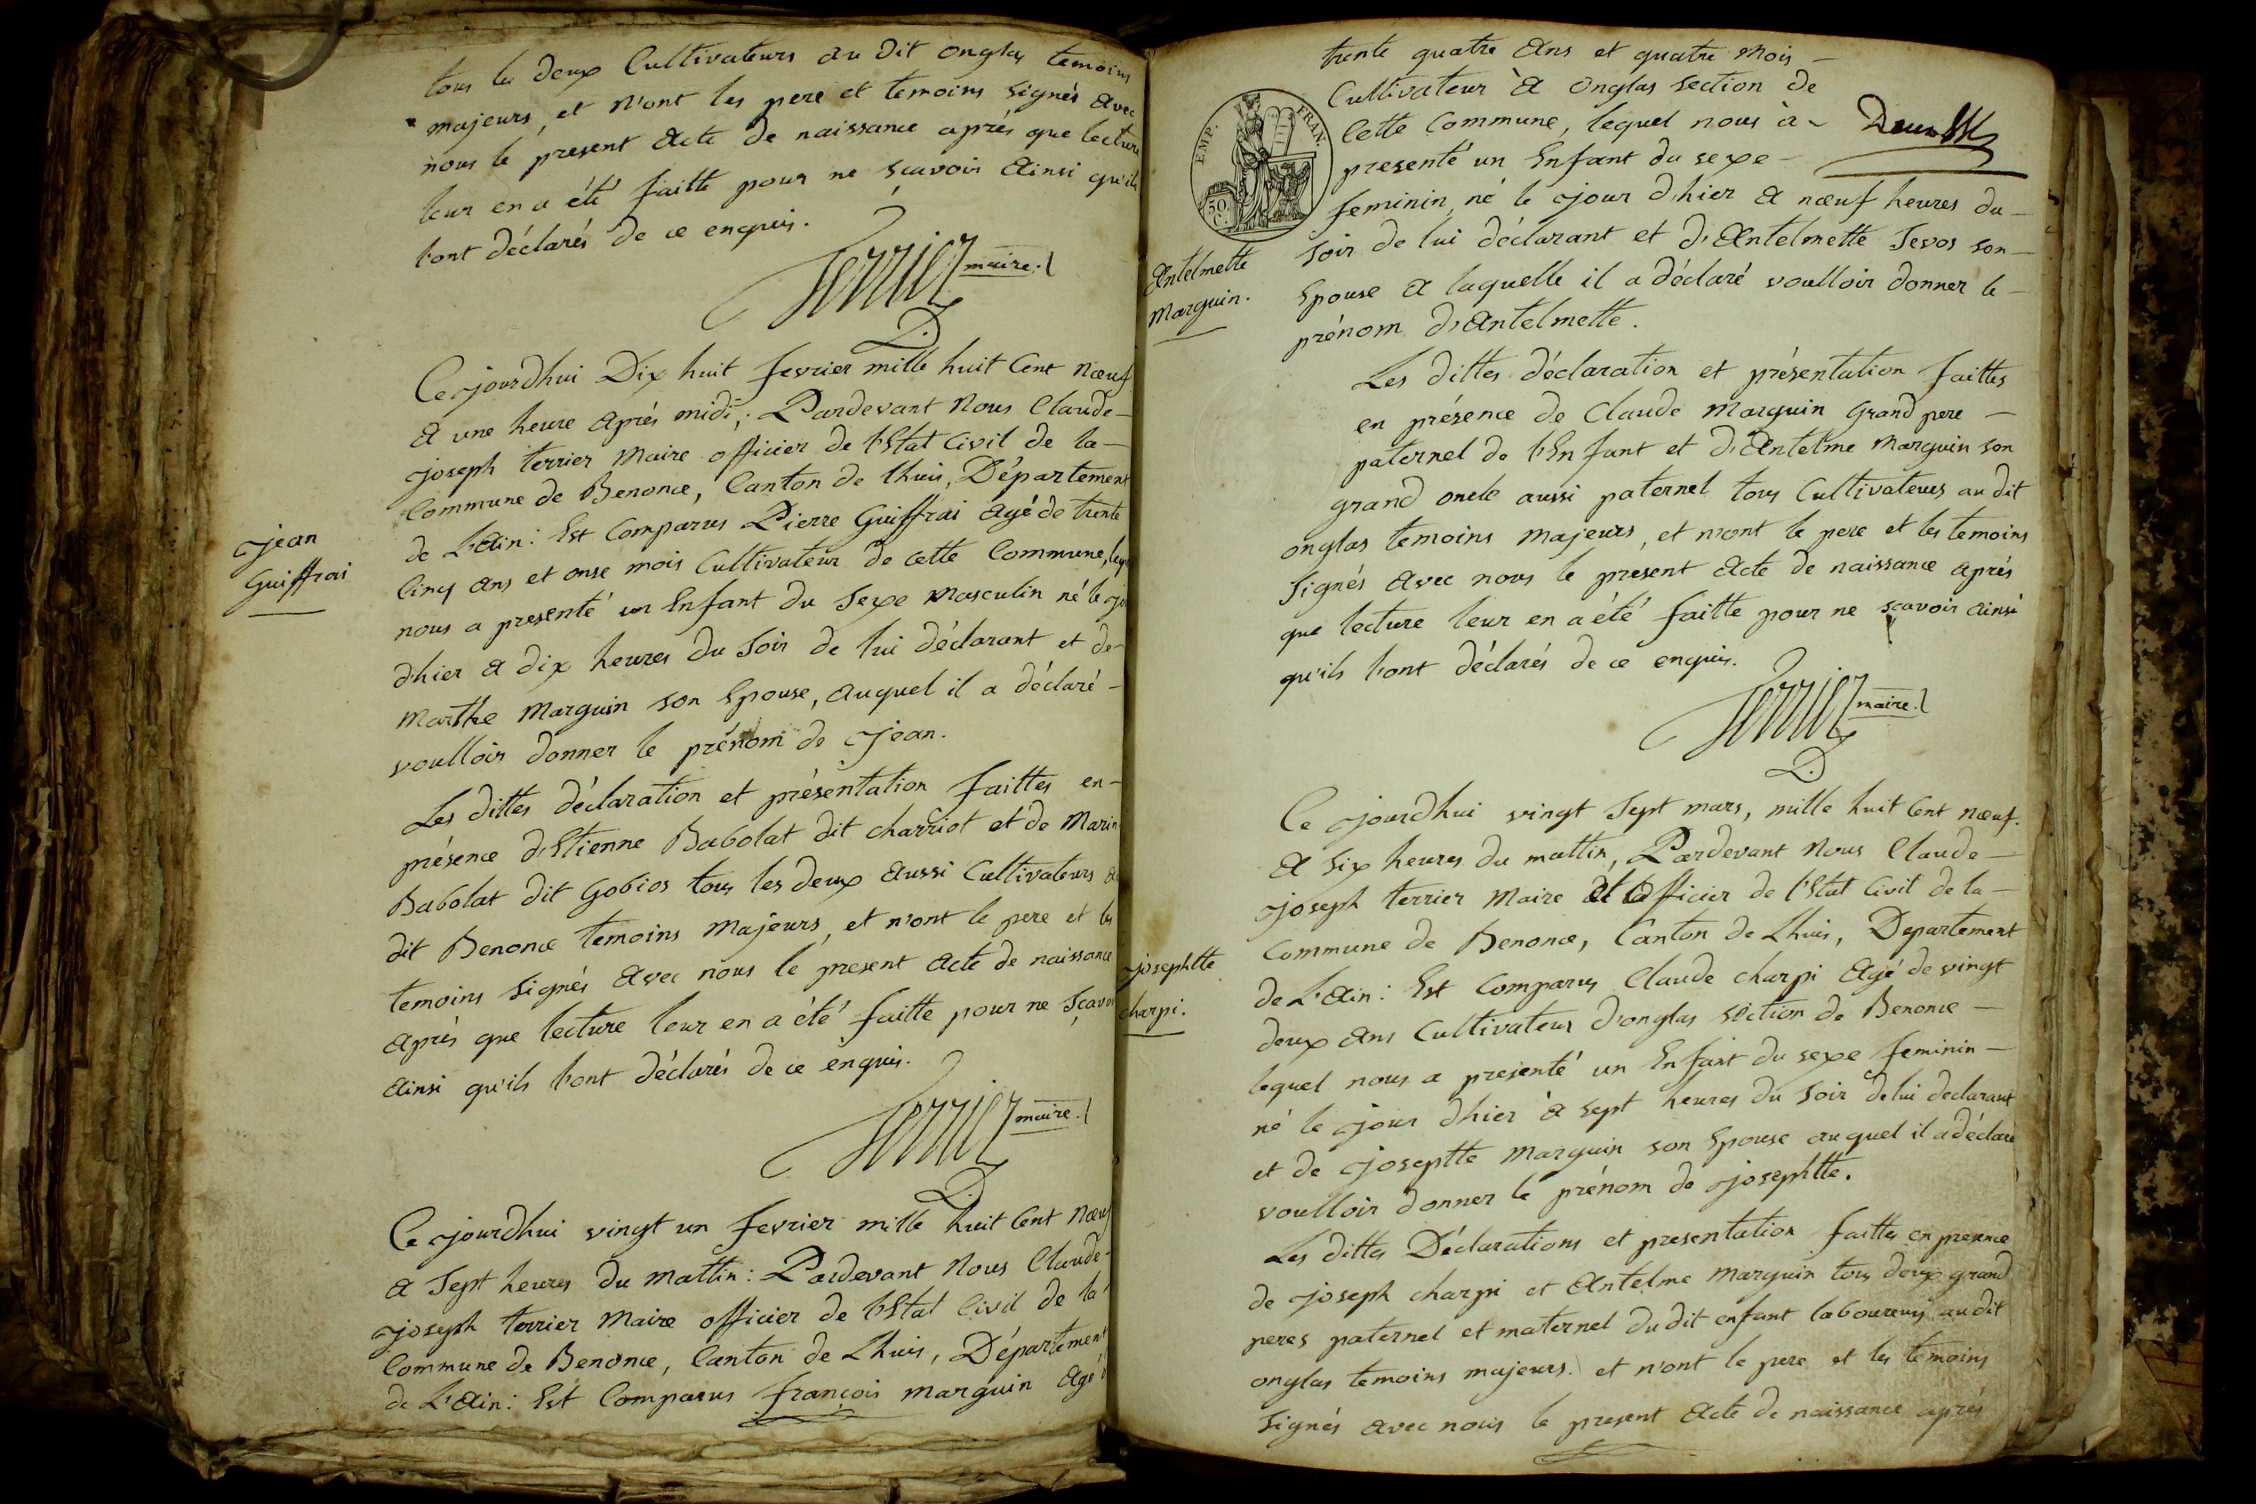 tous les deux Cultivateurs au dit onglas temoins
majeurs, et n'ont les pere et temoins signés avec
nous le present acte de naissance aprés que lecture
leur en a été faitte pour ne sçavoir ainsi qu'ils
l'ont déclarés de ce enquis.
Terrier maire.
jean
Guiffrai
Ce jourdhui Dix huit fevrier mille huit Cent nœuf
a une heure aprés midi; Pardevant Nous Claude-
joseph terrier Maire officier de l'Etat Civil de la-
Commune de Benonce, Canton de Lhuis, Département
de L'Ain: Est Comparus Pierre Guiffrai agé de trente
Cinq ans et onse mois Cultivateur de cette Commune, leq
nous a presenté un Enfant du Sexe masculin né le jo
d'hier a dix heures du Soir de lui déclarant et de-
marthe marguin son Epouse, auquel il a déclaré-
voulloir donner le prénom de jean.
Les dittes déclaration et présentation faittes en-
présence d'Etienne Babolat dit charriot et de Marin
Babolat dit Gobios tous les deux aussi Cultivateurs a
dit Benonce temoins majeurs, et n'ont le pere et les
temoins signés avec nous le present acte de naissance
aprés que lecture leur en a été faitte pour ne Sçavoi
ainsi qu'ils l'ont déclarés de ce enquis.
Terrier maire.
Ce jourdhui vingt un fevrier mille huit Cent Nœuf
a Sept heures du mattin: Pardevant Nous Claude-
joseph terrier Maire officier de l'Etat Civil de la
Commune de Benonce, Canton de Lhuis, Département
de L'Ain: Est Comparus françois marguin agé
EMP. FRAN.
50 C.
trente quatre ans et quatre mois-
Cultivateur à onglas section de
Cette Commune, lequel nous à-
presenté un Enfant du sexe-
feminin, né le jour d'hier a nœuf heures du-
Soir de lui déclarant et d'Antelmette Tevos son-
Epouse a laquelle il a déclaré voulloir donner le-
prénom d'Antelmette.
Antelmette
marguin.
Les dittes déclaration et présentation faittes
en présence de Claude marguin Grand pere-
paternel de l'Enfant et d'Antelme marguin son
grand oncle aussi paternel tous Cultivateurs au dit
onglas temoins majeurs, et n'ont le pere et les temoins
Signés avec nous le present acte de naissance aprés
que lecture leur en a été faitte pour ne sçavoir ainsi
qu'ils l'ont déclarés de ce enquis.
Terrier maire.
Ce jourdhui vingt Sept mars, mille huit Cent nœuf.
a six heures du mattin, Pardevant Nous Claude-
joseph terrier Maire et officier de l'Etat Civil de la-
Commune de Benonce, Canton de Lhuis, Departement
de L'Ain: Est Comparus Claude charpi agé de vingt
deux ans Cultivateur d'onglas séction de Benonce-
lequel nous a presenté un Enfant du sexe feminin-
né le jour d'hier à sept heures du Soir de lui declarant
et de joseptte marguin son Epouse auquel il a déclaré
voulloir donner le prénom de josephtte.
josephtte
charpi.
Les dittes Déclarations et presentation faittes en presence
de joseph charpi et Antelme marguin tous deux grand
peres paternel et maternel du dit enfant laboureurs au dit
onglas temoins majeurs. et n'ont le pere et les temoins
Signés avec nous le present acte de naissance aprés